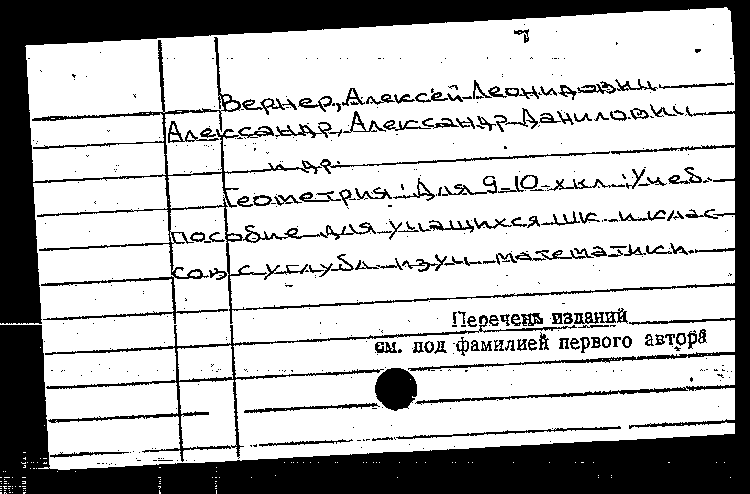 Вернер, Алексей Леонидович
Александр, Александр Данилович
и др.
Геометрия: Для 9-10-х кл.: Учеб.
пособие для учащихся шк. и клас
сов с углубл. изуч. математики.
Перечень изданий
см. под фамилией первого автора